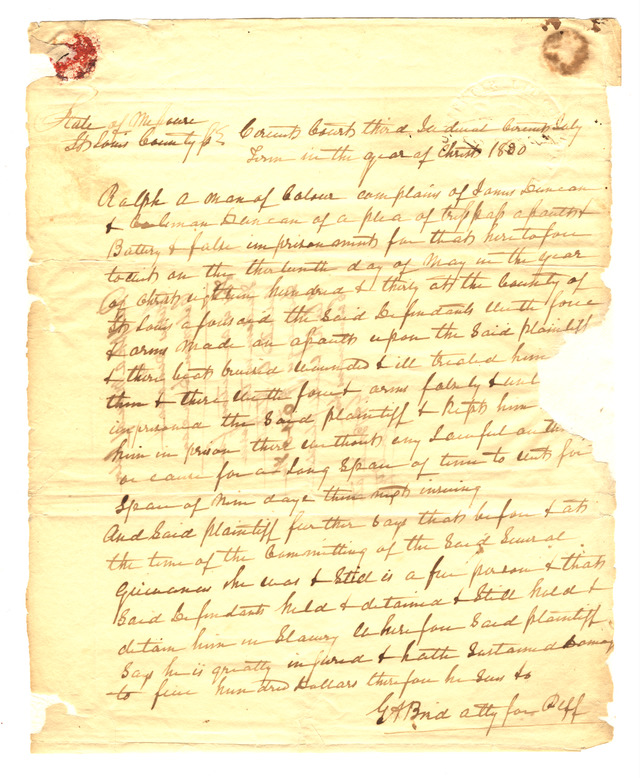 State of Missoure
St Louis County ss Circuit Court third Judicial Circuit July
Term in the year of Christ 1830
Ralph a man of Colour complains of James Duncan
& Coleman Duncan of a plea of trespass assault &
Battery & false imprisonment for that heretofore
towit on the thirteenth day of May in the year
of Christ eighteen hundred & thirty at the County of
St Louis aforesaid the Said Defendants with force
& arms made an assault upon the Said plaintiff
& there beat bruised wounded & ill treated him
then & there with force & arms falsely & unl
imprisoned the Said plaintiff & kept him
him in prison there without any Lawful auth
or cause for a Long Space of time to wit for
Space of Nine days then next insuing
And Said plaintiff further Says that before & at
the time of the Committing of the Said Several
Grievances he was & Still is a free person & that
Said Defendants held & detained & Still hold &
detain him in Slavery Wherefore Said plaintiff
Says he is greatly injured & hath Sustained Damag
to five hundred Dollars therefore he Sues &c
G A Bird atty for Plff